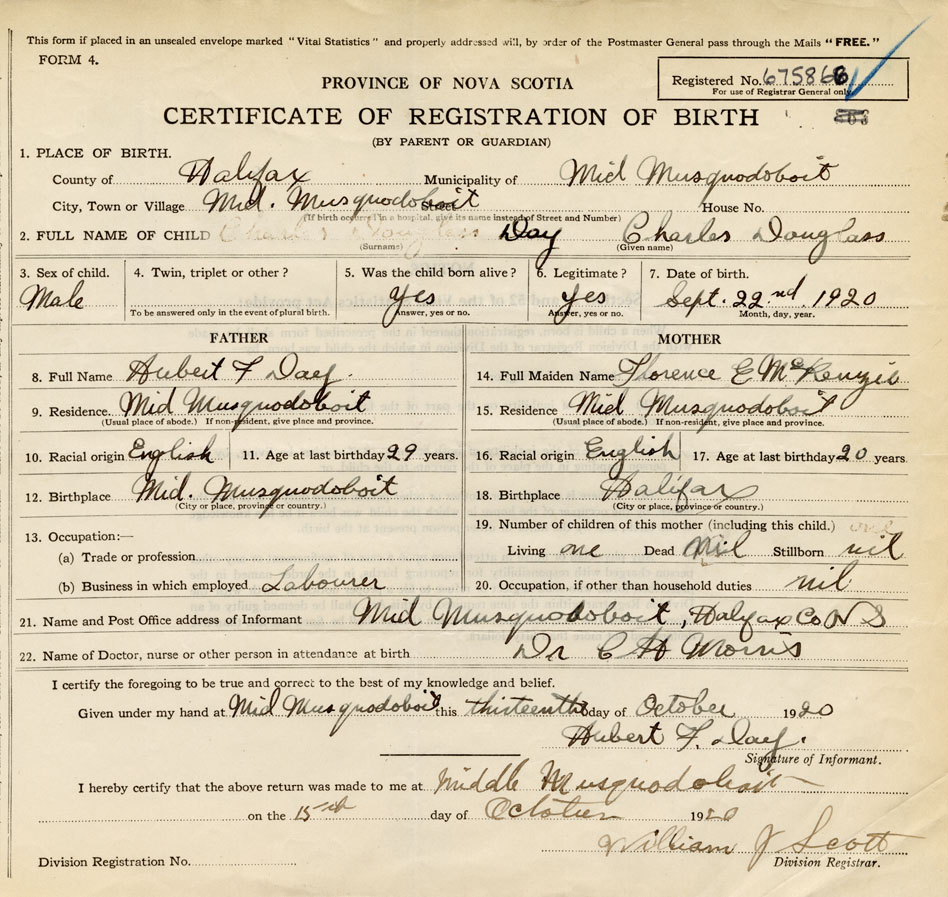 This form if placed in an unsealed envelope marked "Vital Statistics" and properly addressed will, by order of the Postmaster General pass through the Mails "FREE."
FORM 4.
Registered No. 675866
For use of Registrar General only
PROVINCE OF NOVA SCOTIA
CERTIFICATE OF REGISTRATION OF BIRTH
(BY PARENT OR GUARDIAN)
1. PLACE OF BIRTH.
County of Halifax Municipality of Mid Musquodoboit
City, Town or Village Mid. Musquodoboit Street House No.
(If birth occurred in a hospital, give its name instead of Street and Number)
2. FULL NAME OF CHILD Charles Douglass Day Charles Douglass
(Surname) (Given name)
3. Sex of child. 4. Twin, triplet or other? 5. Was the child born alive? 6. Legitimate? 7. Date of birth.
Male Yes Yes Sept. 22nd 1920
To be answered only in the event of plural birth. Answer, yes or no. Answer, yes or no. Month, day, year.
FATHER MOTHER
8. Full Name Hubert F Day. 14. Full Maiden Name Florence E McKenzie
9. Residence. Mid Musquodoboit 15. Residence Mid Musquodoboit
(Usual place of abode.) If non-resident, give place and province. (Usual place of abode.) If non-resident, give place and province.
10. Racial origin English 11. Age at last birthday 29 years. 16. Racial origin English 17. Age at last birthday 20 years.
12. Birthplace Mid. Musquodoboit 18. Birthplace Halifax
(City or place, province or country.) (City or place, province or country.)
13. Occupation:— 19. Number of children of this mother (including this child.)
(a) Trade or profession Living one Dead Nil Stillborn nil
(b) Business in which employed Labourer 20. Occupation, if other than household duties nil
21. Name and Post Office address of Informant Mid Musquodoboit, Halifax Co N S
22. Name of Doctor, nurse or other person in attendance at birth Dr C H Morris
I certify the foregoing to be true and correct to the best of my knowledge and belief.
Given under my hand at Mid Musquodoboit this thirteenth day of October 1920
Hubert F. Day.
Signature of Informant.
I hereby certify that the above return was made to me at Middle Musquodoboit
on the 15th day of October 1920
William J Scott
Division Registration No. Division Registrar.